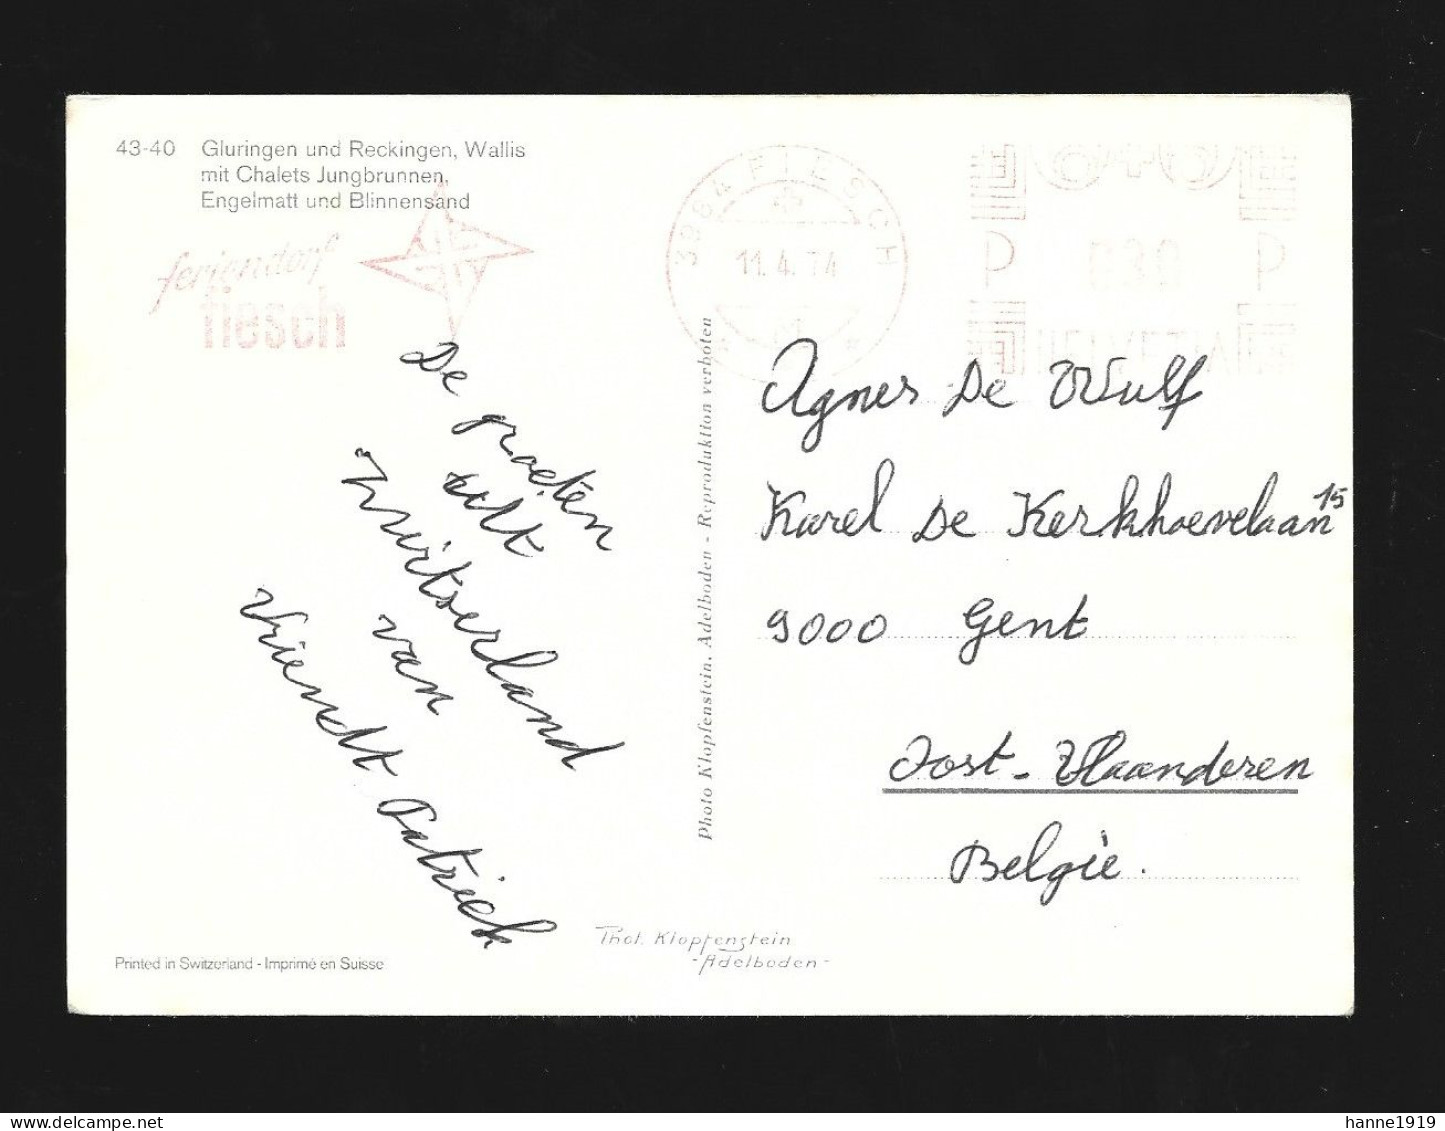 43-40 Gluringen und Reckingen, Wallis
mit Chalets Jungbrunnen,
Engelmatt und Blinnensand
feriendorf
fiesch
3984 FIESCH
11.4.74
P 030 P
HELVETIA
De groeten
uit
Zwitserland
van
Vriendt Patriek
Photo Klopfenstein, Adelboden - Reproduktion verboten
Agnes De Wulf
Karel De Kerkhoevelaan 15
9000 Gent
Oost-Vlaanderen
België.
Phot. Klopfenstein
-Adelboden-
Printed in Switzerland - Imprimé en Suisse
hanne1919